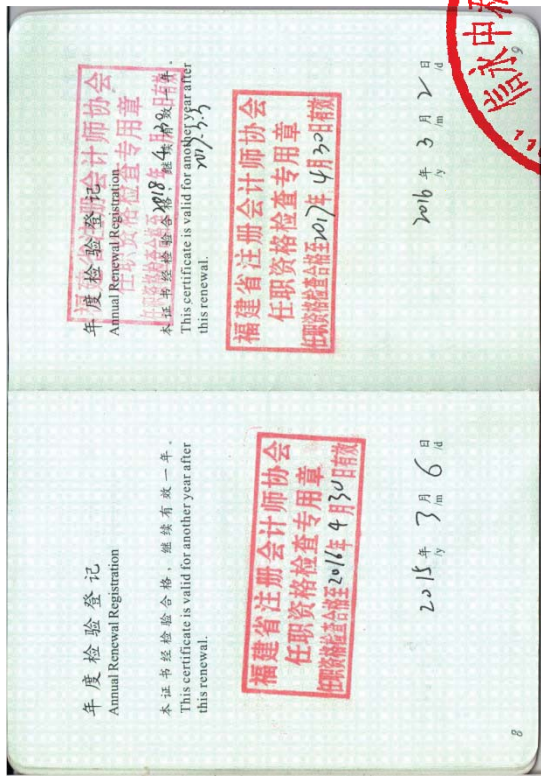 年度检验登记
Annual Renewal Registration
本证书经检验合格，继续有效一年。
This certificate is valid for another year after
this renewal.
福建省注册会计师协会
任职资格检查专用章
任职资格检查合格至2016年4月30日有效
2015年 3月 6日
/y /m /d
8
年度检验登记
Annual Renewal Registration
福建省注册会计师协会
任职资格检查专用章
任职资格检查合格至2018年4月30日有效
本证书经检验合格，继续有效一年。
This certificate is valid for another year after
this renewal.
2017.3.3
福建省注册会计师协会
任职资格检查专用章
任职资格检查合格至2017年4月30日有效
2016年 3月 2日
/y /m /d
9
信永中和
11